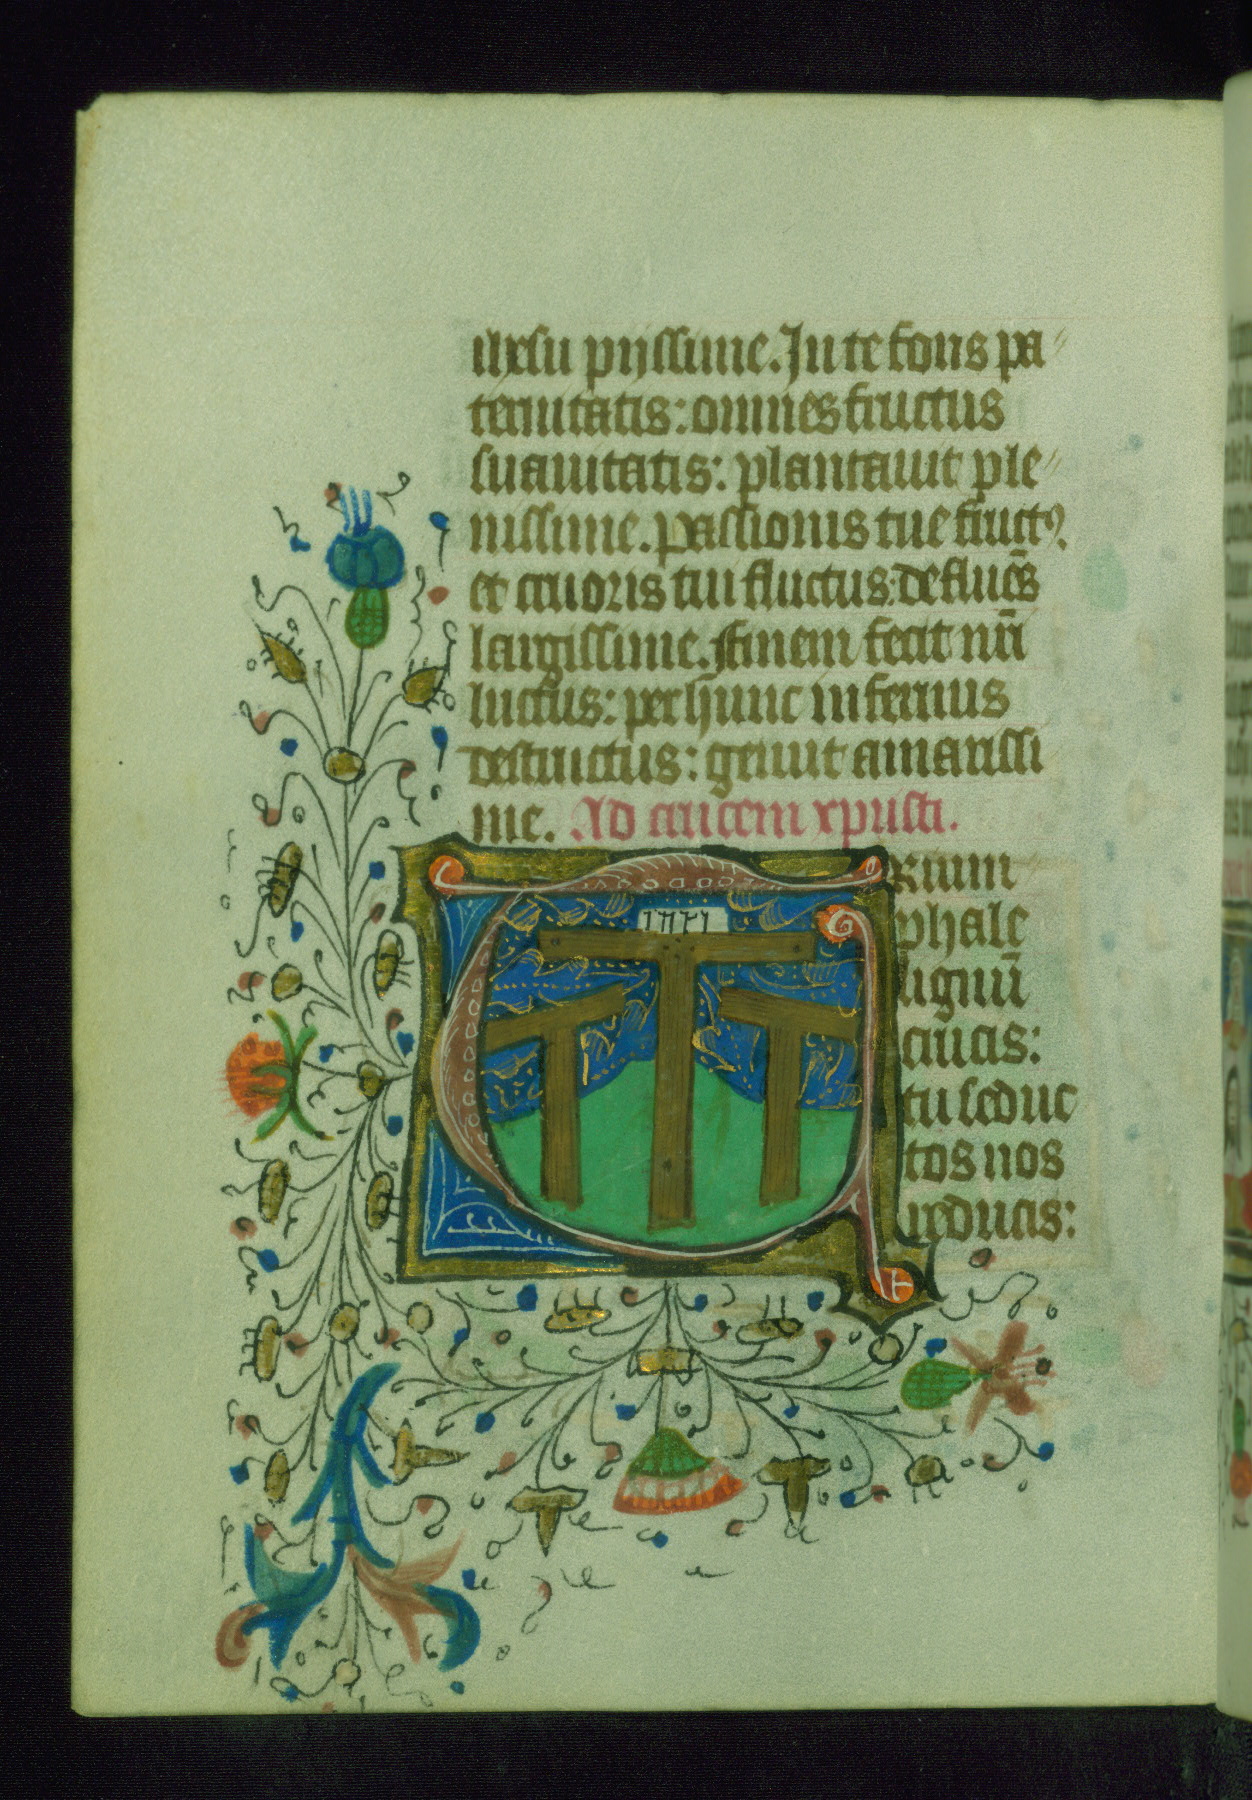 ihesu pijssime. In te fons pa
ternitatis: omnes fructus
suauitatis: plantauit ple
nissime. passionis tue fruct9.
et cruoris tui fluctus: defluēs
largissime. ffinem fecit nr̄i
luctus: per hunc infernus
destructus: gemit amarissi
me. Ad crucem xpristi.
INRI
Trium
phale
lignū
crucis:
tu seduc
tos nos
reducis: